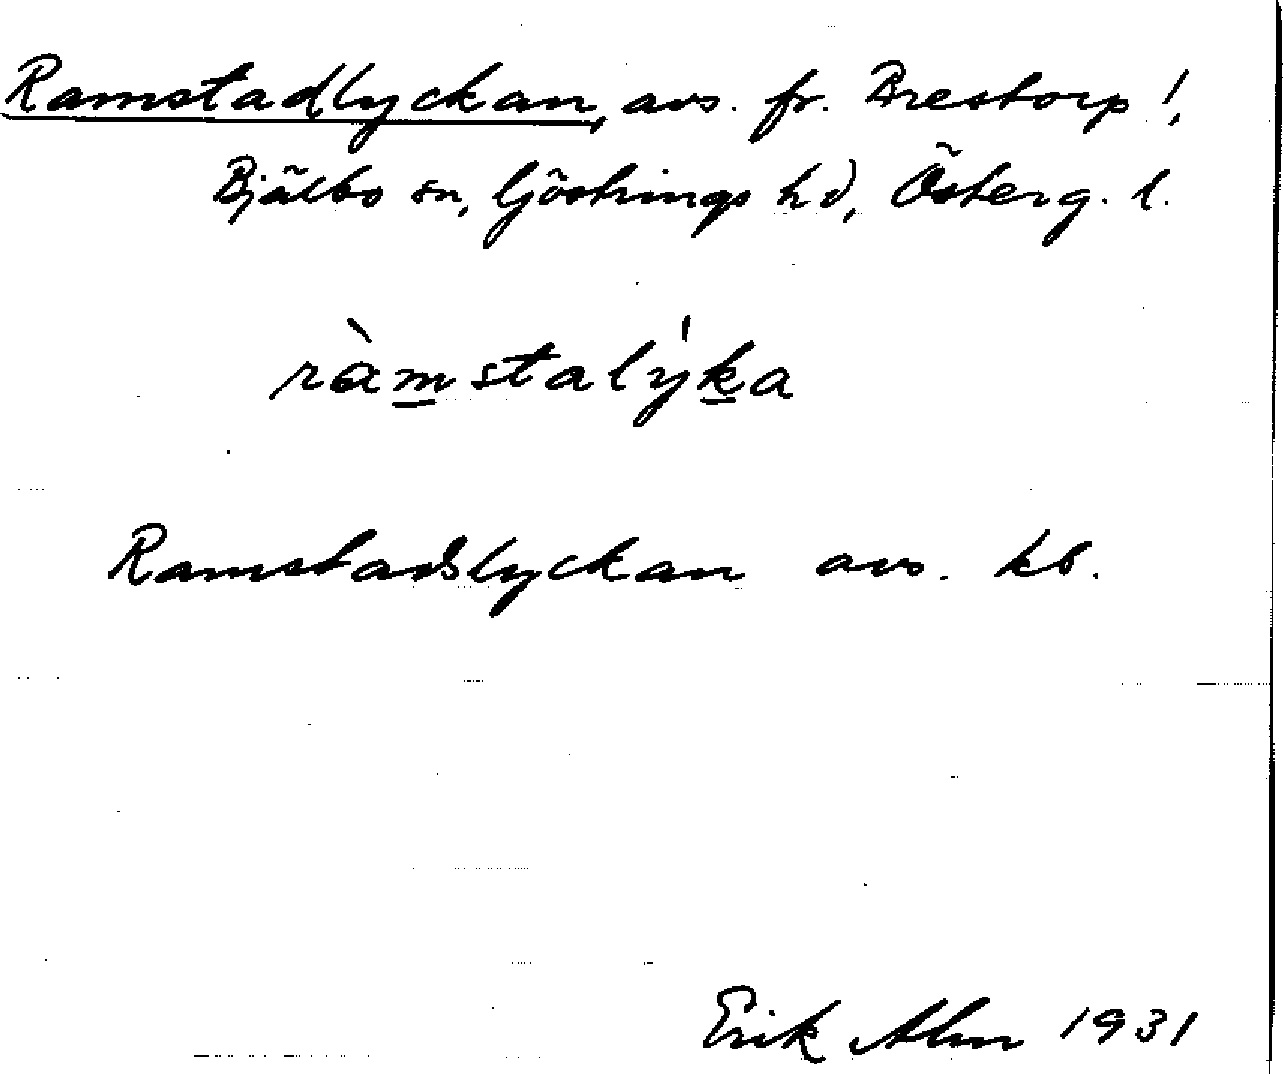 Ramstadlyckan, avs. fr. Brestorp!,
Bjälbo sn, Göstrings hd, Österg. l.
ràmstalýka
Ramstadslyckan avs. kb.
Erik Alm 1931